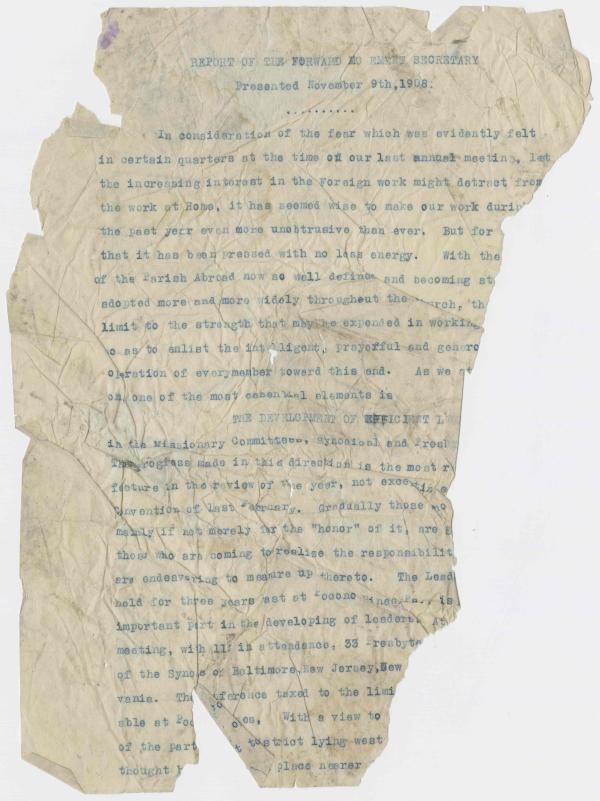 REPORT OF THE FORWARD MO EMENT SECRETARY
Presented November 9th,1908.
..........
In consideration of the fear which was evidently felt
in certain quarters at the time of our last annual meeting, let
the increasing interest in the Foreign work might detract from
the work at Home, it has seemed wise to make our work durin
the past year even more unobtrusive than ever. But for
that it has been pressed with no less energy. With the
of the Parish Abroad now so well define and becoming st
adopted more and more widely throughout the urch, th
limit to the strength that may be expended in workin
so as to enlist the intelligent, prayerful and genero
operation of every member toward this end. As we st
on one of the most essential elements is
THE DEVELOPMENT OF EFFICIENT L
in the Missionary Committees, Synodical and Presb
The progress made in this direction is the most r
feature in the review of the year, not excepting
Convention of last February. Gradually those
mainly if not merely for the "honor" of it, are g
those who are coming to realise the responsibilit
are endeavoring to measure up thereto. The Lead
held for three years past at Pocono Pines,Pa., is
important part in the developing of leaders. At
meeting, with 11 in attendance, 33 Presbyte
of the Synods of Baltimore,New Jersey,New
vania. The ference taxed to the limi
able at Poc With a view to
of the part strict lying west
thought place nearer